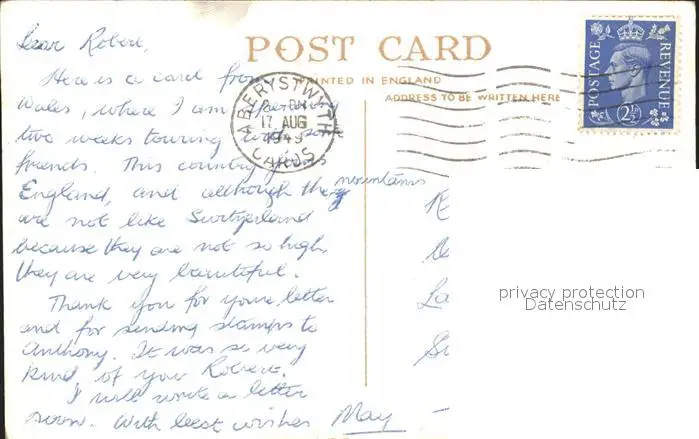 Dear Robert,
POST CARD
PRINTED IN ENGLAND
ADDRESS TO BE WRITTEN HERE
POSTAGE
REVENUE
2½D
ABERYSTWYTH
17 AUG
1949
CARDS
Here is a card from
Wales, where I am spending
two weeks touring with some
friends. This country joins
England, and although the mountains
are not like Switzerland
because they are not so high,
they are very beautiful.
Thank you for your letter
and for sending stamps to
Anthony. It was so very
kind of you Robert.
I will write a letter
soon. With best wishes May
La
privacy protection
Datenschutz